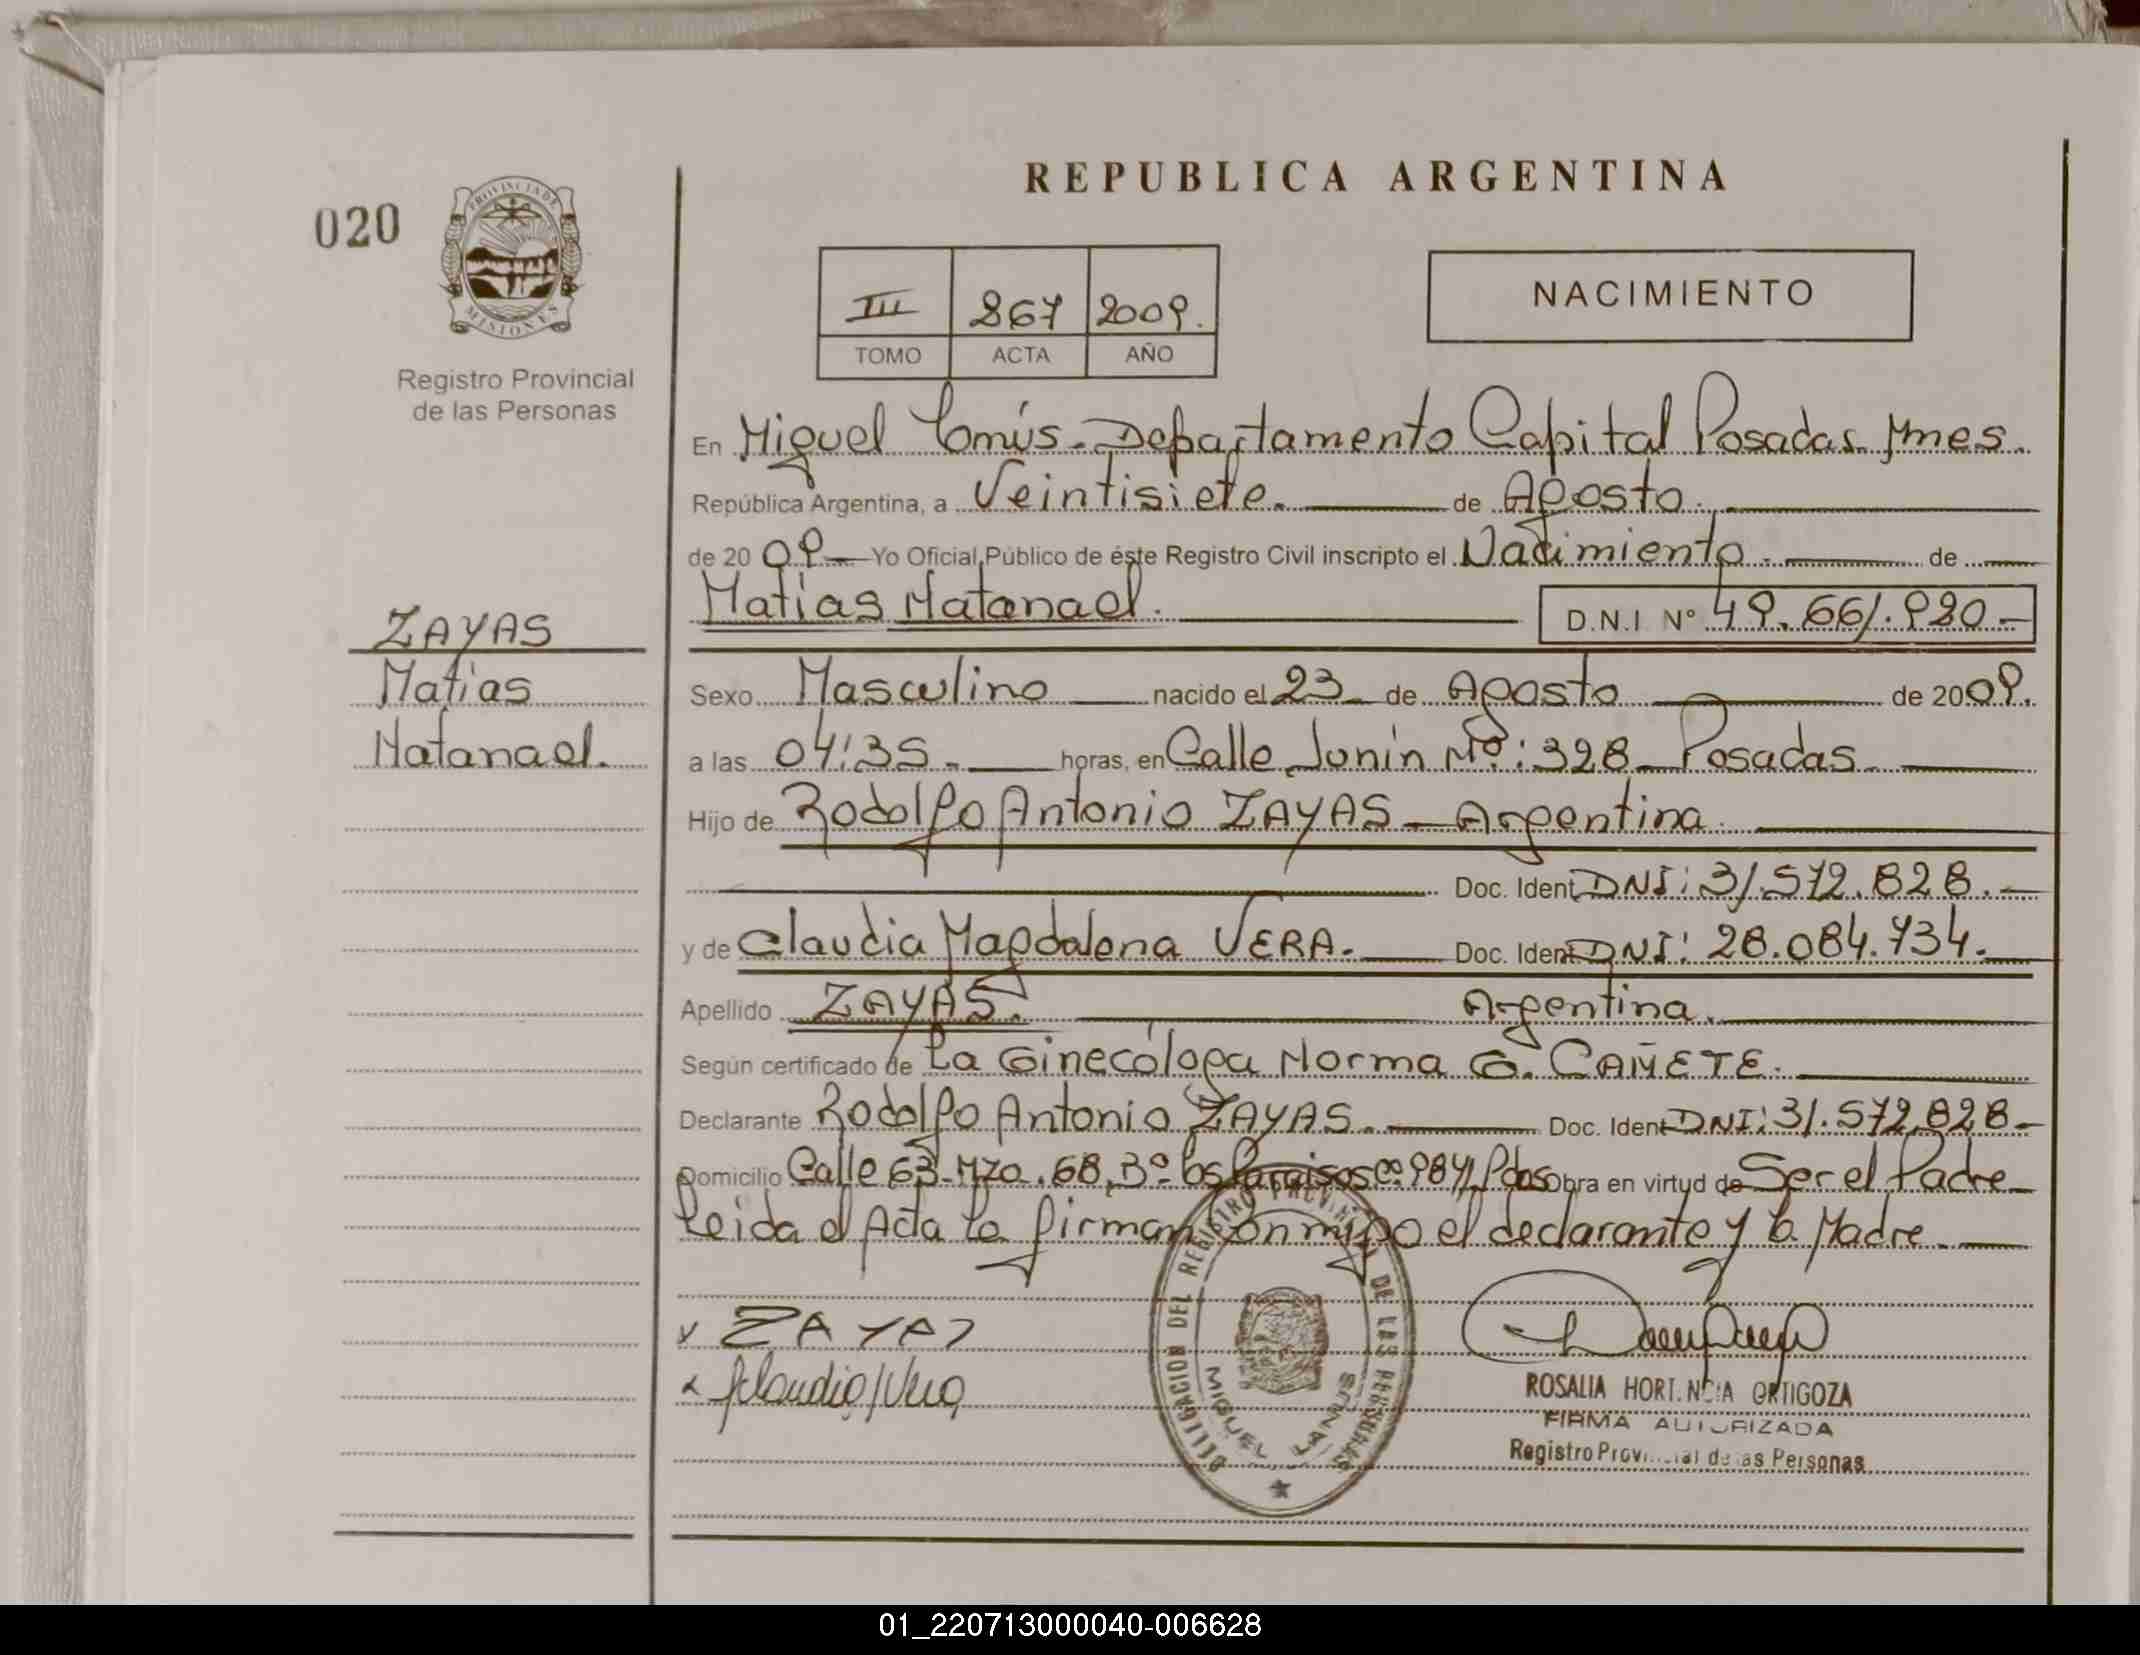 REPUBLICA ARGENTINA
020
PROVINCIA DE
MISIONES
Registro Provincial
de las Personas
III 267 2009.
TOMO ACTA AÑO
NACIMIENTO
En Miguel Lanús - Departamento Capital Posadas Mnes.
República Argentina, a Veintisiete. de Agosto.
de 20 09 Yo Oficial Público de éste Registro Civil inscripto el Nacimiento. de
Matías Natanael. D.N.I Nº 49.661.920.-
ZAYAS
Matías
Natanael.
Sexo Masculino nacido el 23 de Agosto de 2009.
a las 04:35. horas, en Calle Junín Nº: 328 - Posadas
Hijo de Rodolfo Antonio ZAYAS - Argentina
Doc. Ident DNI: 31.572.828.-
y de Claudia Magdalena VERA. Doc. Ident DNI: 28.084.734.
Apellido ZAYAS. Argentina.
Según certificado de La Ginecóloga Norma G. CAÑETE.
Declarante Rodolfo Antonio ZAYAS. Doc. Ident DNI: 31.572.828-
Domicilio Calle 63 - Mza. 68, Bº Los Paraisos Cª 984 Pdas Obra en virtud de Ser el Padre
Leida el Acta la firman conmigo el declarante y la Madre.
x ZAYAS
x Claudia Vera
DELEGACION DEL REGISTRO PROVINCIAL DE LAS PERSONAS
MIGUEL LANUS
ROSALIA HORTENCIA ORTIGOZA
FIRMA AUTORIZADA
Registro Provincial de las Personas
01_220713000040-006628